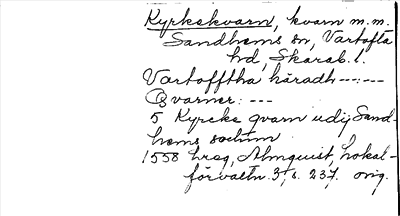 Kyrkekvarn, kvarn m.m.
Sandhems sn, Vartofta
hd, Skarab. l.
Vartofftha häradh ---:---
Qvarner: ---
5 Kyrcke qvarn udij Sand-
hems sochnn
1558 breg, Almquist, Lokal-
förvaltn. 3, s. 237. orig.